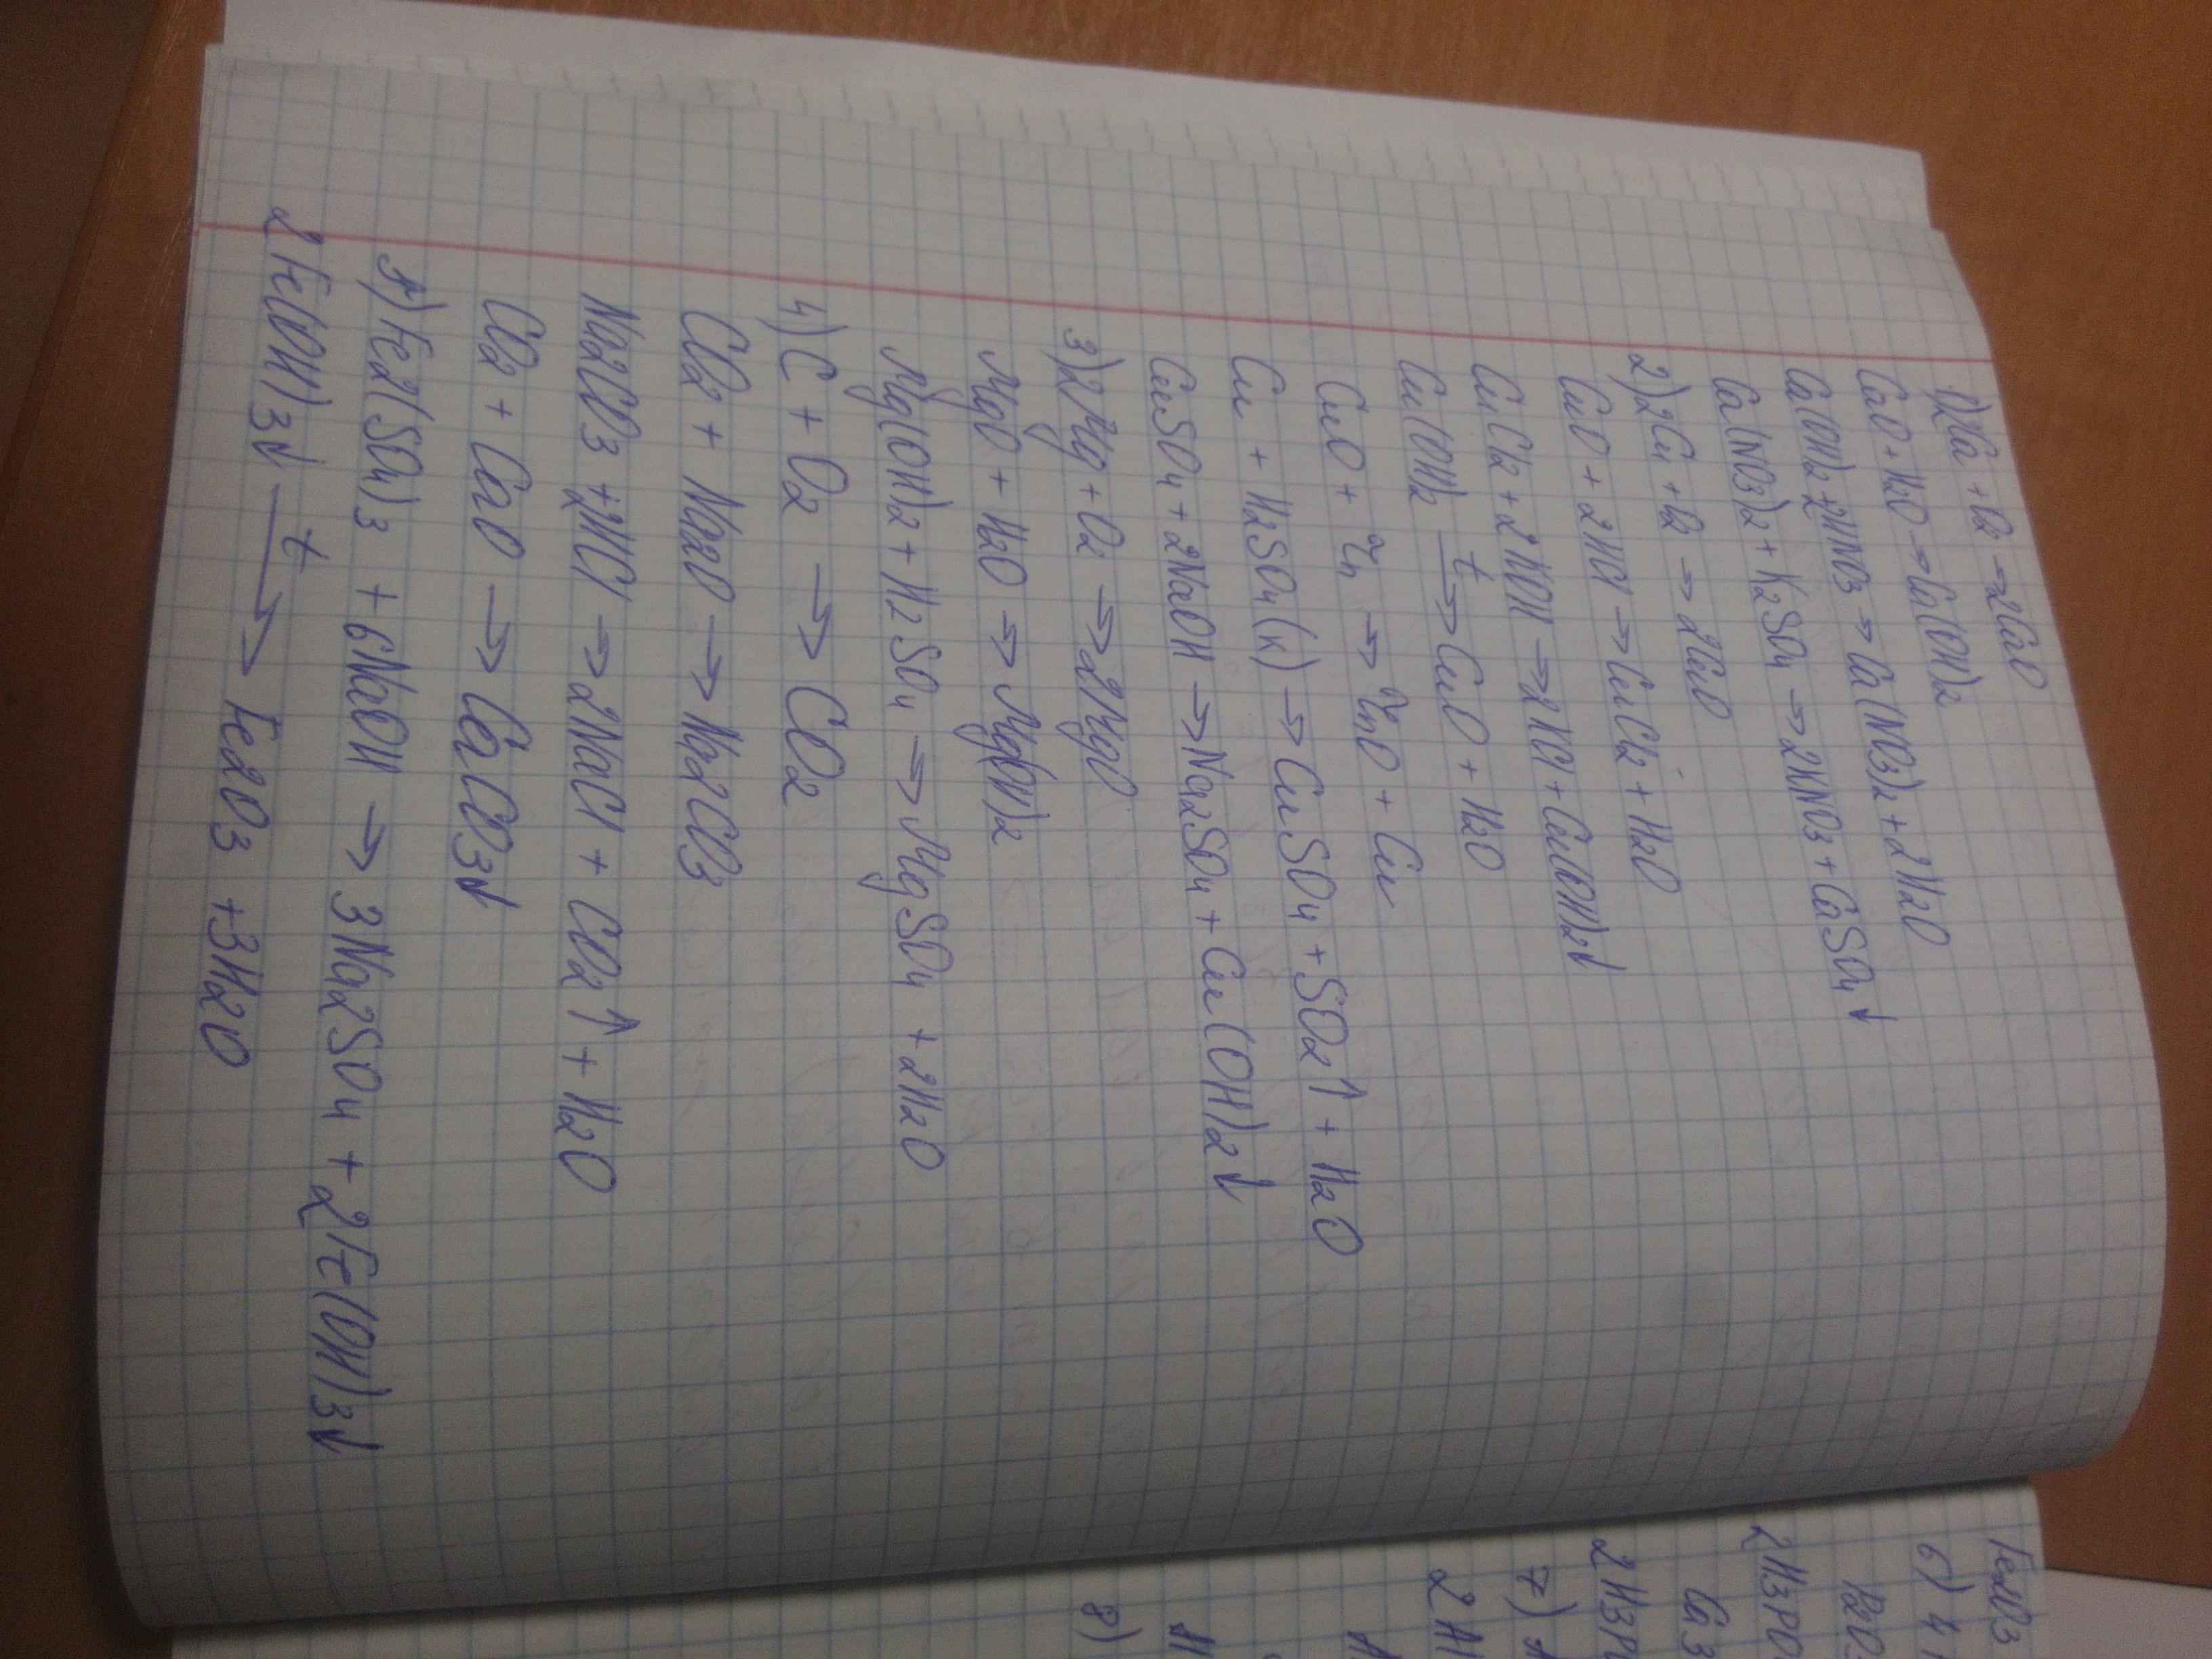 1)2Ca + O2 → 2CaO
CaO + H2O → Ca(OH)2
Ca(OH)2 + 2HNO3 → Ca(NO3)2 + 2H2O
Ca(NO3)2 + K2SO4 → 2KNO3 + CaSO4↓
2)2Cu + O2 → 2CuO
CuO + 2HCl → CuCl2 + H2O
CuCl2 + 2KOH → 2KCl + Cu(OH)2↓
Cu(OH)2 t→ CuO + H2O
CuO + Zn → ZnO + Cu
Cu + H2SO4(к) → CuSO4 + SO2↑ + H2O
CuSO4 + 2NaOH → Na2SO4 + Cu(OH)2↓
3)2Mg + O2 → 2MgO
MgO + H2O → Mg(OH)2
Mg(OH)2 + H2SO4 → MgSO4 + 2H2O
4)C + O2 → CO2
CO2 + Na2O → Na2CO3
Na2CO3 + 2HCl → 2NaCl + CO2↑ + H2O
CO2 + CaO → CaCO3↓
Fe2(SO4)3 + 6NaOH → 3Na2SO4 + 2Fe(OH)3↓
2Fe(OH)3↓ t→ Fe2O3 + 3H2O
Fe2O3
6) 4
2H3PO
Ca3
2H3P
7)
2H
H
8)